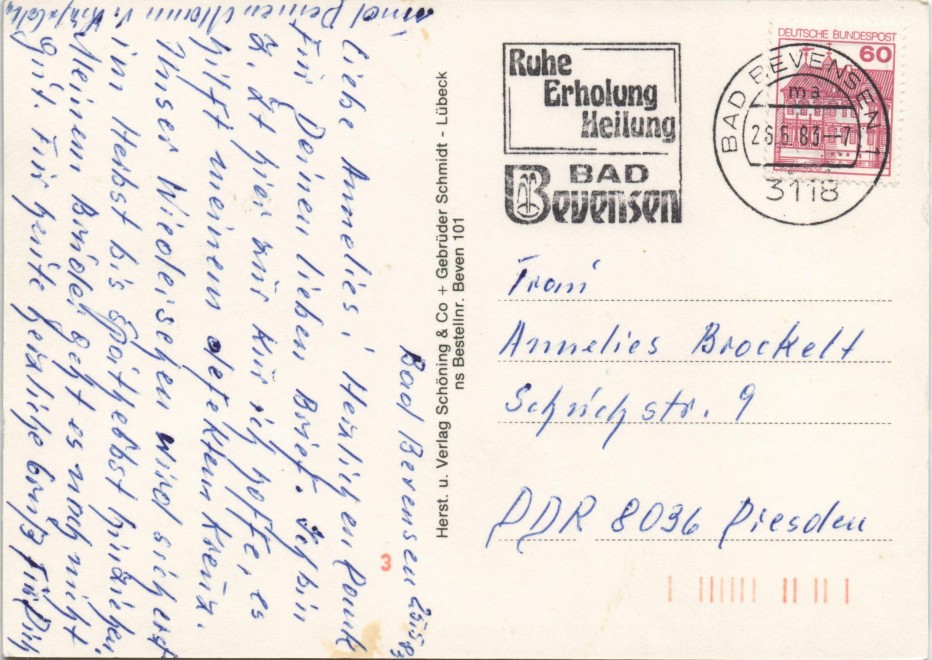 Bad Bevensen 25.5.83
Liebe Annelies! Herzlichen Dank
für Deinen lieben Brief. Ich bin
z. Zt hier zur Kur ich hoffe, es
hilft meinem defekten Kreuz.
Unser Wiedersehen wird sich erst
im Herbst bis Spätherbst hinziehen
Meinem Bruder geht es noch nicht
gut. Für heute herzliche Grüße für Dich
und Deinen Mann v.
Herst. u. Verlag Schöning & Co + Gebrüder Schmidt - Lübeck
ns Bestellnr. Beven 101
3
Ruhe
Erholung
Heilung
BAD
Bevensen
DEUTSCHE BUNDESPOST
60
BAD BEVENSEN 1
ma
26.5.83-7
3118
Frau
Annelies Brockelt
Schrichstr. 9
DDR 8036 Dresden